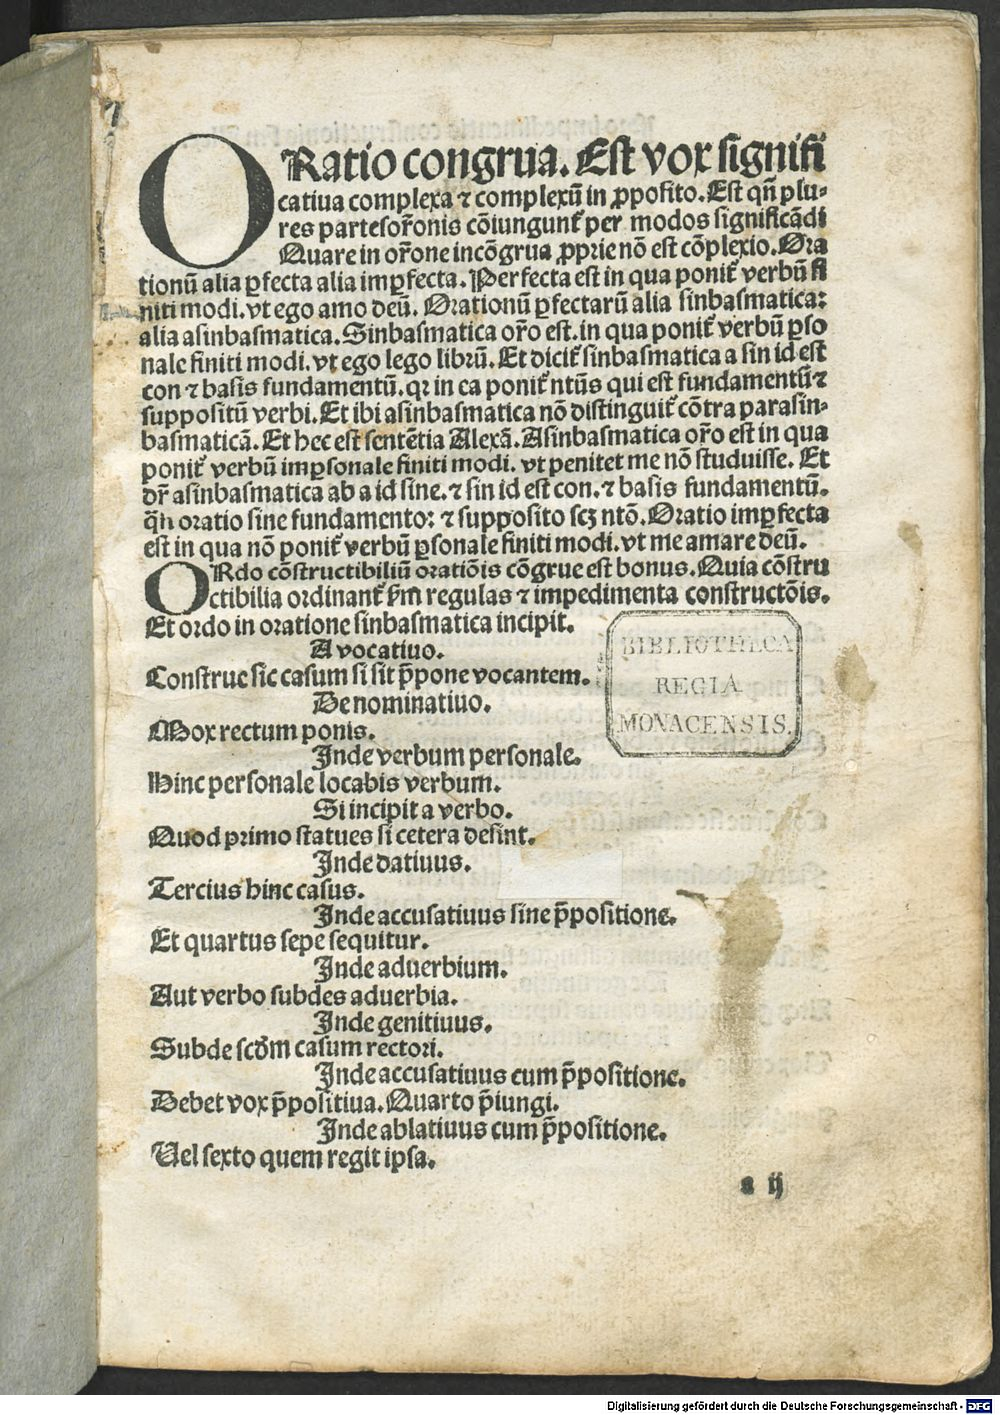 ORatio congrua. Est vox signifi
catiua complexa ⁊ complexū in ꝓposito. Est qn̄ plu-
res partesor̄onis cōiungunt᷑ per modos significādi
Quare in or̄one incōgrua ꝓprie nō est cōplexio. Ora
tionū alia ꝑfecta alia imꝑfecta. Perfecta est in qua ponit᷑ verbū fi
niti modi. vt ego amo deū. Orationū ꝑfectarū alia sinbasmatica:
alia asinbasmatica. Sinbasmatica or̄o est. in qua ponit᷑ verbū ꝑso
nale finiti modi. vt ego lego librū. Et dicit᷑ sinbasmatica a sin id est
con ⁊ basis fundamentū. qꝛ in ea ponit᷑ ntūs qui est fundamentū ⁊
suppositū verbi. Et ibi asinbasmatica nō distinguit᷑ cōtra parasin-
basmaticā. Et hec est sentētia Alexā. Asinbasmatica or̄o est in qua
ponit᷑ verbū imꝑsonale finiti modi. vt penitet me nō studuisse. Et
dr̄ asinbasmatica ab a id sine. ⁊ sin id est con. ⁊ basis fundamentū.
q̄n oratio sine fundamento: ⁊ supposito scꝫ ntō. Oratio imꝑfecta
est in qua nō ponit᷑ verbū ꝑsonale finiti modi. vt me amare deū.
ORdo cōstructibiliū oratiōis cōgrue est bonus. Quia cōstru
ctibilia ordinant᷑ ẜm regulas ⁊ impedimenta constructōis.
Et ordo in oratione sinbasmatica incipit.
A vocatiuo.
Construe sic casum si sit p̄pone vocantem.
BIBLIOTHECA
REGIA
MONACENSIS.
De nominatiuo.
Mox rectum ponis.
Inde verbum personale.
Hinc personale locabis verbum.
Si incipit a verbo.
Quod primo statues si cetera desint.
Inde datiuus.
Tercius hinc casus.
Inde accusatiuus sine p̄positione.
Et quartus sepe sequitur.
Inde aduerbium.
Aut verbo subdes aduerbia.
Inde genitiuus.
Subde scōm casum rectori.
Inde accusatiuus cum p̄positione.
Debet vox p̄positiua. Quarto p̄iungi.
Inde ablatiuus cum p̄positione.
Uel sexto quem regit ipsa.
a ij
Digitalisierung gefördert durch die Deutsche Forschungsgemeinschaft - DFG